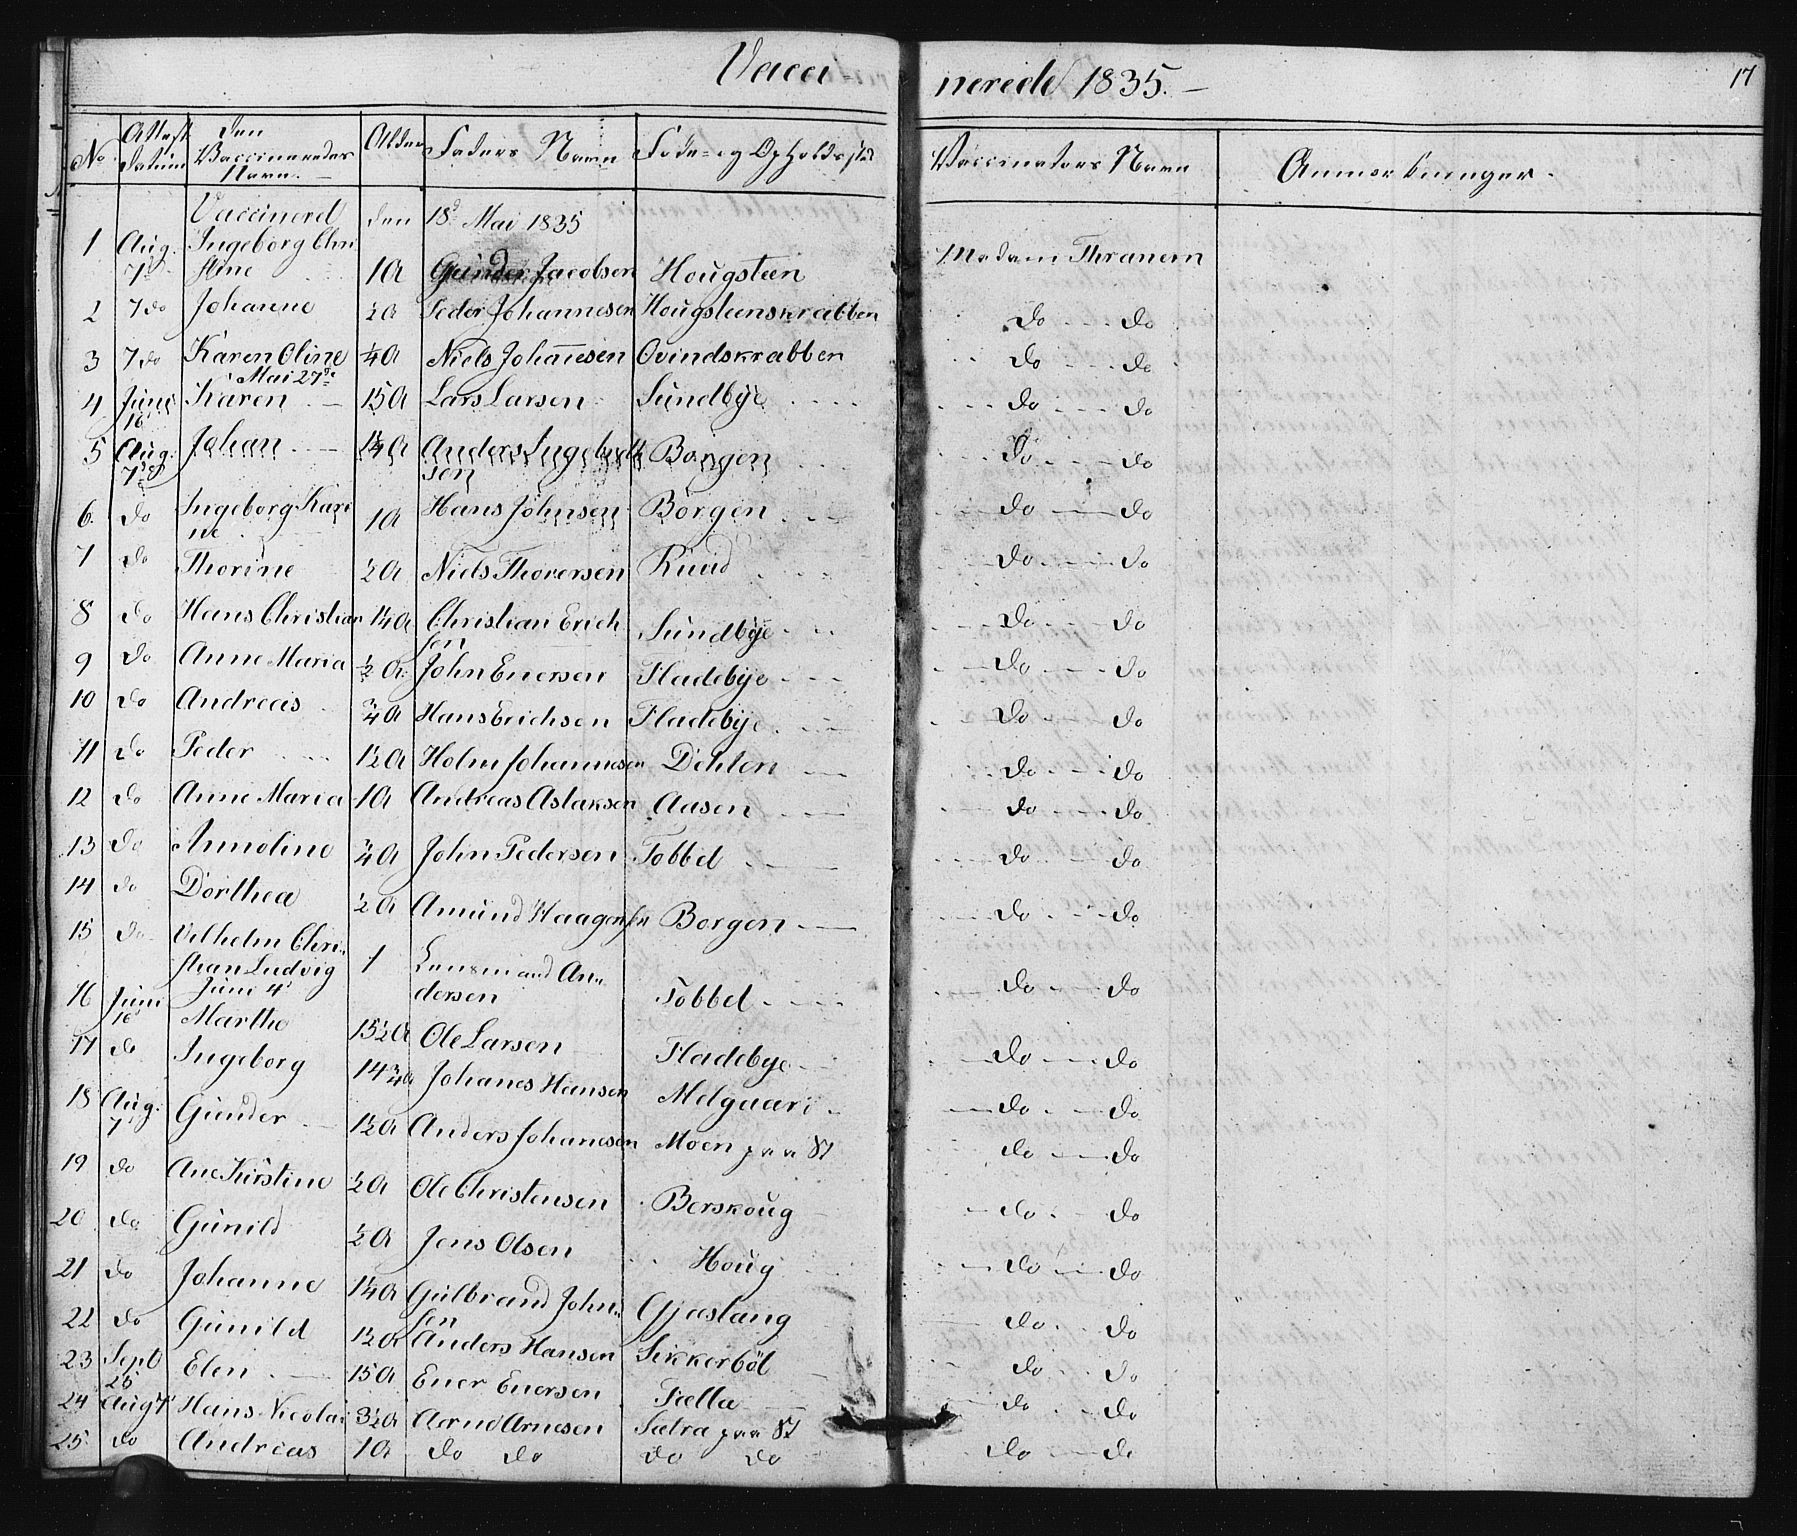 Vacci nerede 1835.— 17
No Attest Datum Den Vaccineredes Navn. Alder Faders Navn Føde- og Opholdssted Vaccinators Navn Anmærkninger.
Vaccinerd den 18d Mai 1835
1 Aug. 7d Ingeborg Chri stine 1 A Gunder Jacobsen Hougsteen Madam Thranem
2 7 do Johanne ½ A Peder Johannesen Hougsteenskrabben do do
3 7 do Karen Oline ¼ A Niels Johanesen Ovindskrabben do do
Mai 27de
4 Juni 16 Karen 15 A Lars Larsen Sundbye do do
5 Aug. 7de Johan 1¼ A Anders Ingebreth sen Borgen do do
6. do Ingeborg Kari ne 1 A Hans Johnsen Borgen do do
7 do Thorine ½ A Niels Thorersen Ruud do do
8 do Hans Christian 1¼ A Christian Erich sen Sundbye do do
9 do Anne Maria ½ A. John Enersen Fladebye do do
10 do Andreas ¾ A Hans Erichsen Fladebye do do
11 do Peder 1½ A Holm Johannesen Dehlen do do
12 do Anne Maria 1 A Andreas Aslaksen Aasen do do
13 do Annoline ¾ A John Pedersen Tobbel do do
14 do Dorthea ½ A Amund Haagensen Borgen do do
15 do Vilhelm Chri stian Ludvig 1 Lensmand An dersen Tobbel do do
Juni 4
16 Juni 16 Marthe 15½ A Ole Larsen Fladebye do do
17 do Ingeborg 14¾ A Johanes Hansen Melgaard do do
18 Aug. 7 Gunder 1½ A Anders Johanesen Moen paa do do
19 do Ane Kirstine ½ A Ole Christensen Berskoug do do
20 do Gunild ½ A Jens Olsen Houg do do
21 do Johanne 1¼ A Gulbrand John sen Gjæslang do do
22 do Gunild 1½ A Anders Hansen Sikkerböl do do
23 Sept 25 Elen 15 A Ener Enersen Fælla do do
24 Aug 7 Hans Nicolai 3½ A Aarne Arnesen Sætra paa do do
25 do Andreas 1 A do do do do do do